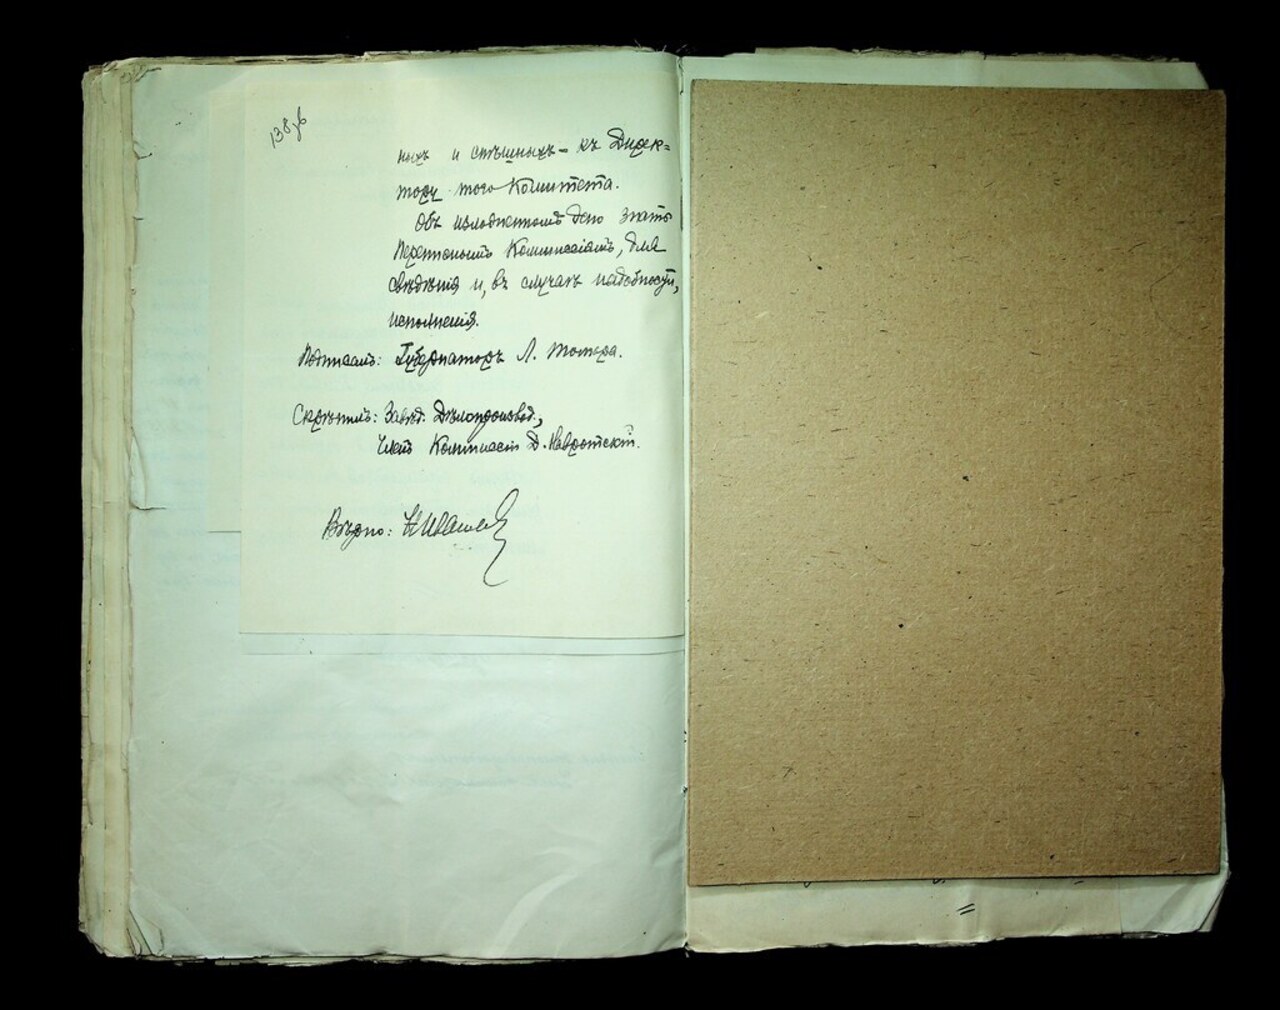 138об
ныхъ и спѣшныхъ – къ Дирек=
тору того Комитета.
Объ изложенномъ даю знать
Переписнымъ Коммиссіямъ, для
свѣдѣнія и, въ случаѣ надобности,
исполненія.
Подписалъ: Губернаторъ Л. Томара.
Скрѣпилъ: Завѣд. Дѣлопроизвод.,
Членъ Коммиссіи Д. Навротскій.
Вѣрно: